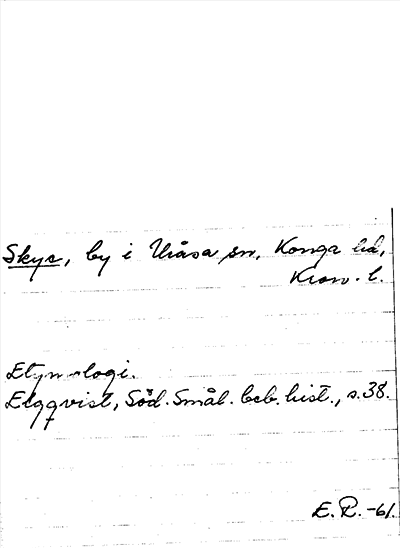 Skye, by i Uråsa sn, Konga hd,
Kron. l.
Etymologi.
Elgqvist, Söd. Smål. beb. hist., s. 38.
E. R. -61.